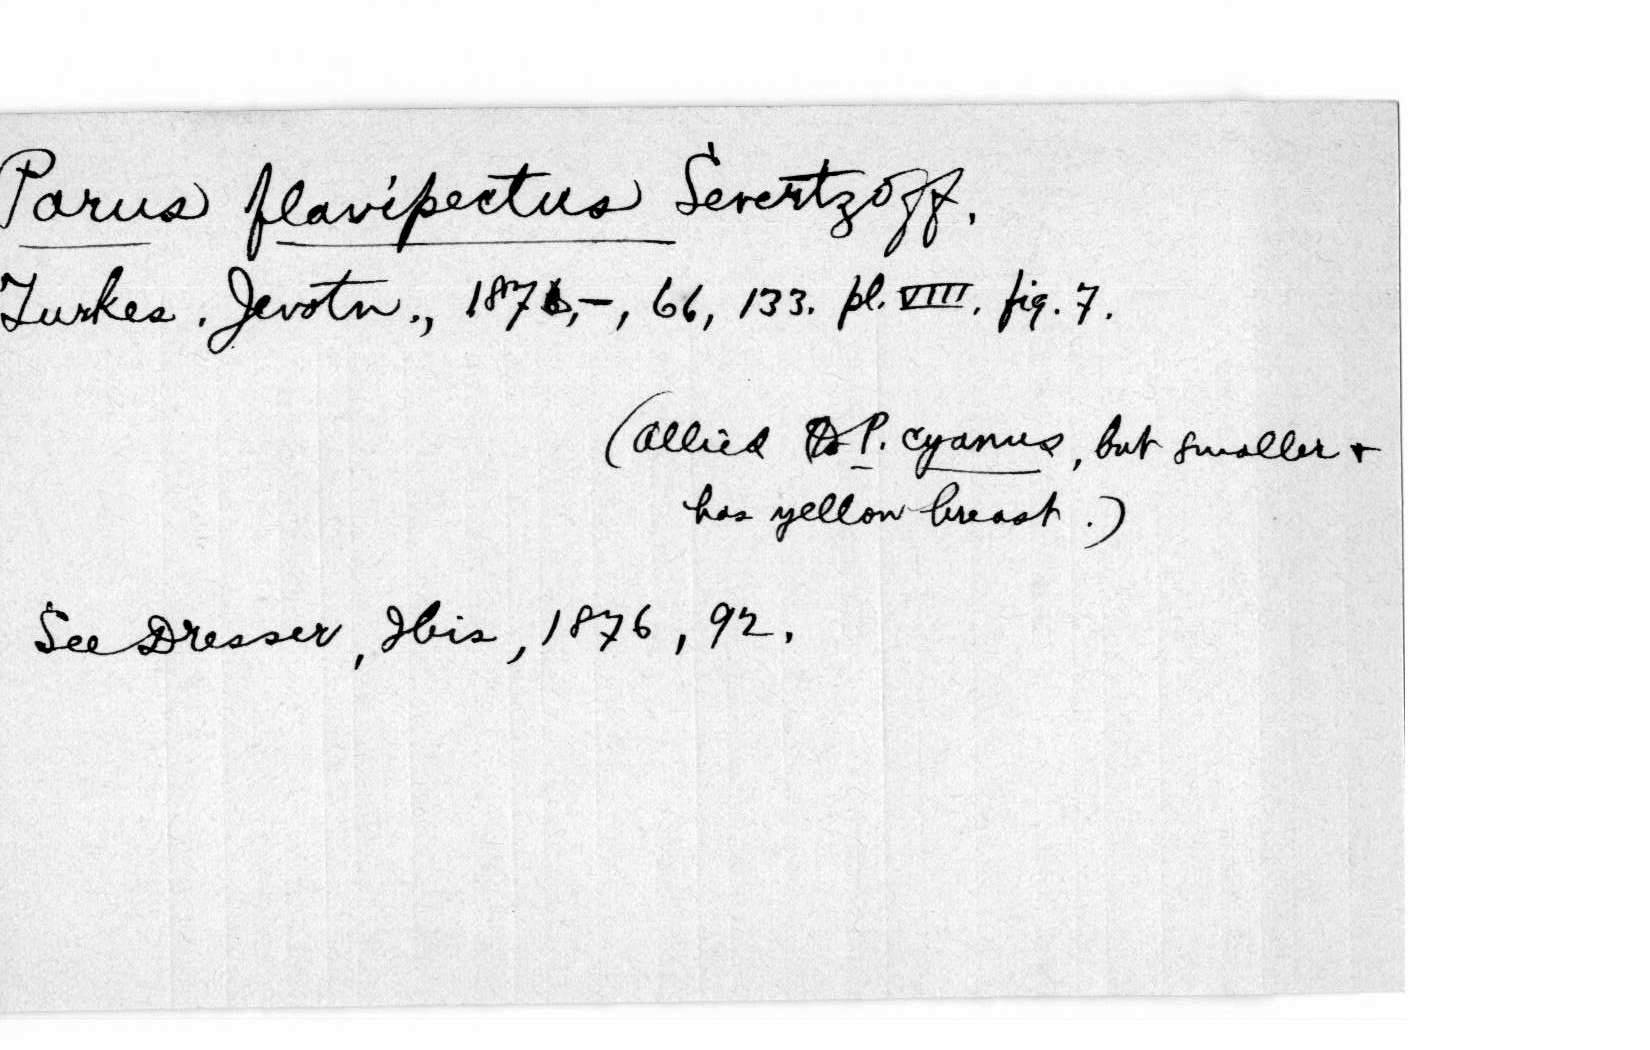 Parus flavipectus Severtzoff.
Turkes. Jevotn., 1876,-, 66, 133. pl. VIII. fig. 7.
(Allied to P. cyanus, but smaller +
has yellow breast.)
See Dresser, Ibis, 1876, 92.